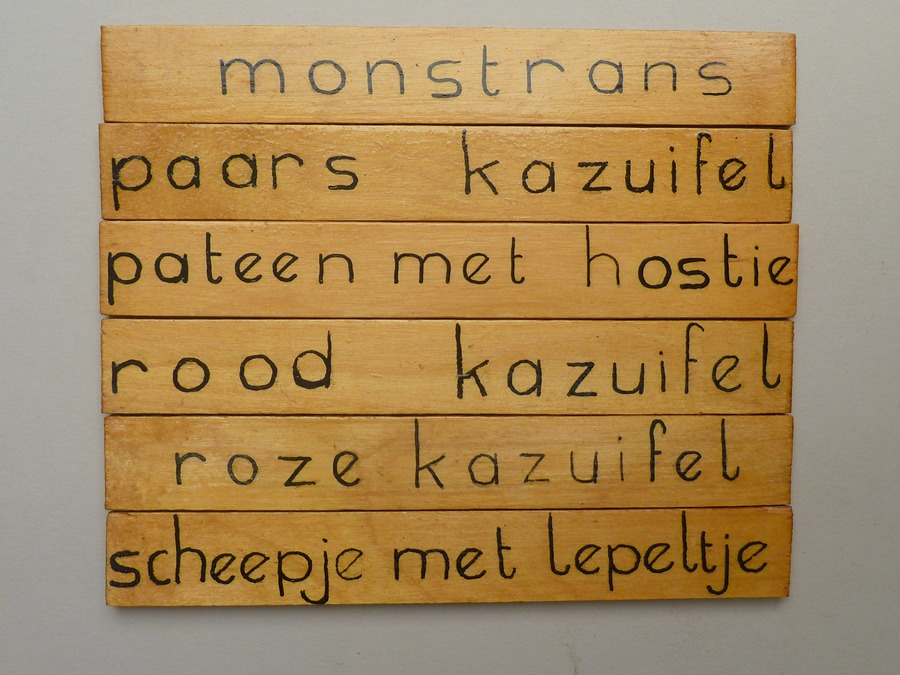 monstrans
paars kazuifel
pateen met hostie
rood kazuifel
roze kazuifel
scheepje met lepeltje